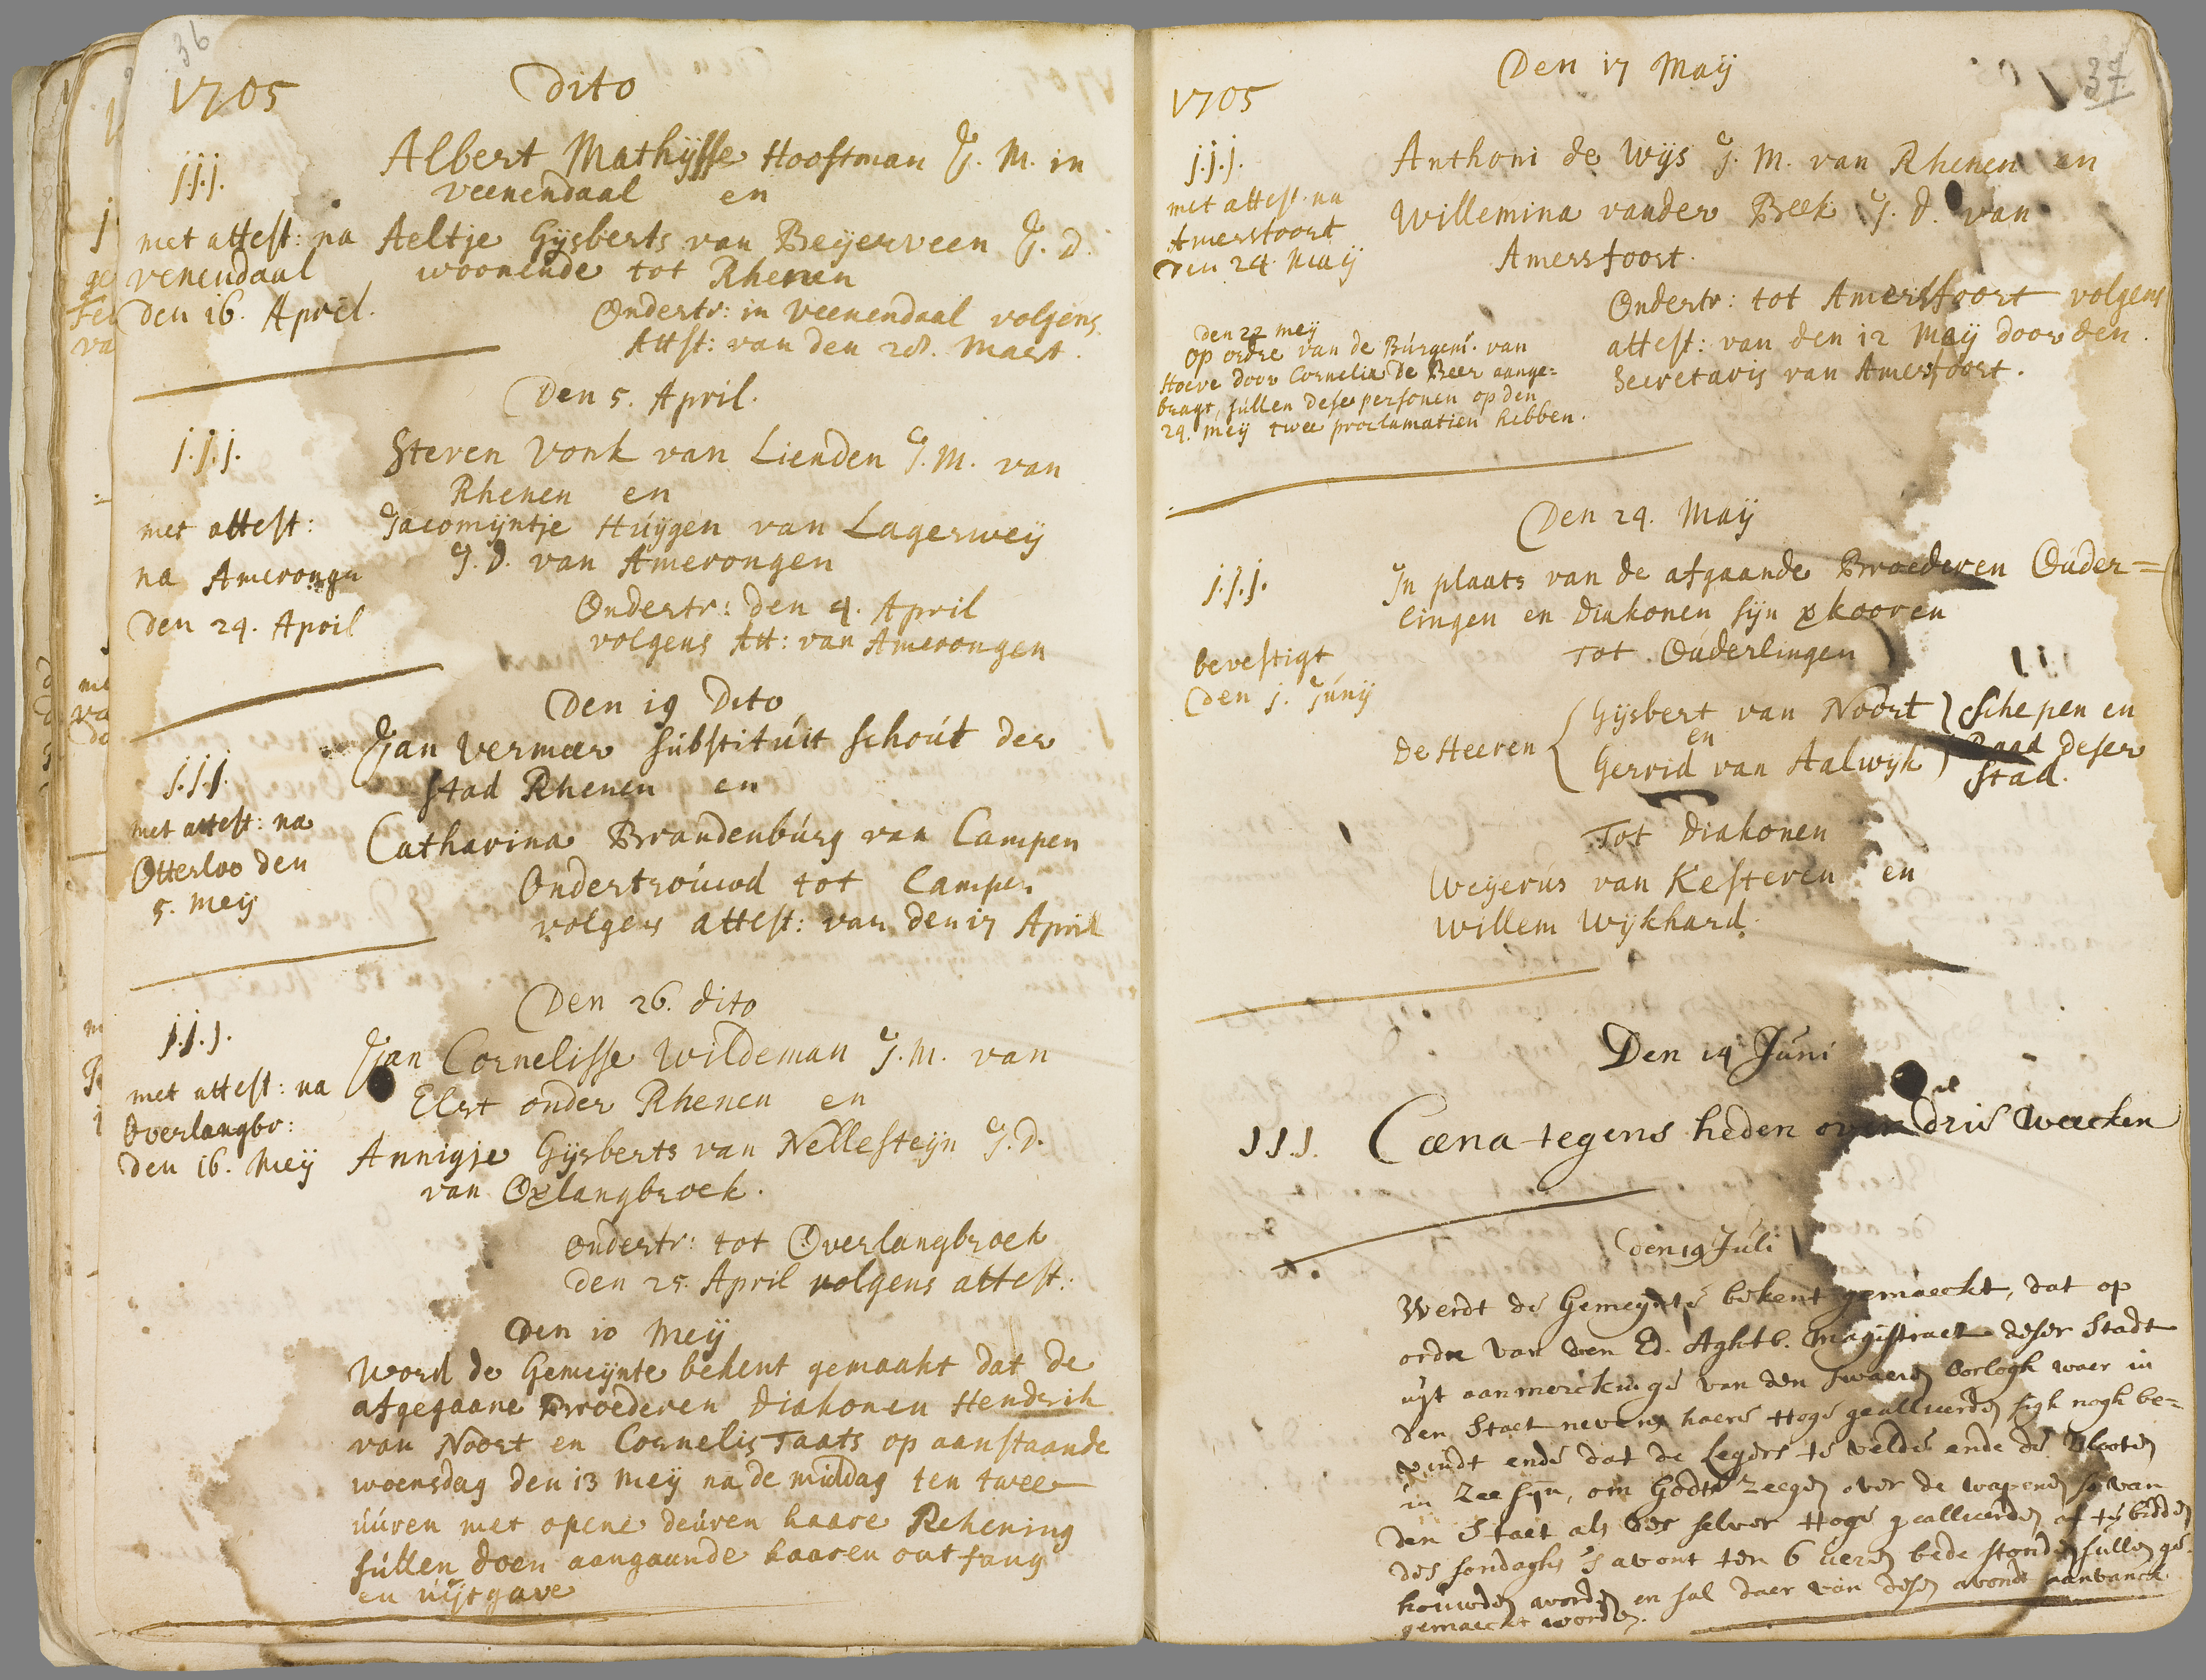 36
1705
dito
j.j.j.
Albert Mathijsse Hooftman J. M. in
veenendaal en
met attest: na
venendaal
den 16. April.
Aeltje Gijsberts van Beijerveen J. D.
woonende tot Rhenen
Ondertr: in veenendaal volgens
Attst: van den 28. Maert.
Den 5. April.
j.j.j.
met attest:
na Amerongen
den 24. April
Steven Vonk van Lienden J. M. van
Rhenen en
Jacomijntje Huijgen van Lagerweij
J. D. van Amerongen
Ondertr: den 4. April
volgens Att: van Amerongen
Den 19 Dito
j.j.j.
met attest: na
Otterloo den
5. Meij
Jan Vermeer substituit schout der
stad Rhenen en
Catharina Brandenburg van Campen
Ondertrouwd tot Campen
volgens attest: van den 17 April
Den 26. dito
j.j.j.
met attest: na
Overlangbr:
den 16. Meij
Jan Cornelisse Wildeman J. M. van
Elst onder Rhenen en
Annigje Gijsberts van Nellesteijn J. D.
van langbroek.
ondertr: tot Overlangbroek
den 25. April volgens attest:
Den 10 Meij
Word de Gemeijnte bekent gemaakt dat de
afgegaane Broederen Diakonen Hendrik
van Noort en Cornelis Taats op aanstaande
woensdag den 13 Meij na de middag ten twee
uuren met opene deuren haare Rekening
sullen doen aangaande haaren ontfang
en uijtgave
37
1705
Den 17 Maij
j.j.j.
met attest. na
Amersfoort
Den 24. Maij
Anthoni de Wijs J. M. van Rhenen en
Willemina vander Beek J. D. van
Amersfoort.
Ondertr: tot Amersfoort volgens
attest: van den 12 Maij door den
Secretaris van Amersfoort.
den 22 meij
op ordre van de Burgem. van
Hoeve door Cornelia De Beer aange=
bragt, sullen dese personen op den
24. meij twee proclamatien hebben.
Den 24. Maij
j.j.j.
bevestigt
den j. Junij
In plaats van de afgaande Broederen Ouder=
lingen en Diakonen sijn kooren
Tot Ouderlingen
De Heeren
Gijsbert van Noort
en
Gerrid van Aalwijk
Schepen en
Raad deser
Stad.
Tot Diakonen
Weijerus van Kesteren en
Willem Wijkhard.
Den 14 Juni
J.J.J.
Cæna tegens heden over drie weecken
Den 19 Juli
Werdt de Gemeijnte bekent gemaeckt, dat op
order van den Ed. Aghtb. Magistraet deser Stadt
uijt aanmerckinge van den swaeren Oorlogh waer in
den Staet nevens haere Hoge geallieerden sigh nogh be=
vindt ende dat de Legers te velde ende de Vlooten
in Zee sijn, om Godts Zeegen over de wapenen so van
den Staet als der selver Hoge geallieerden af te bidden
des sondaghs s'avont ten 6 ueren bede stonden sullen ge-
houwden worden en sal daer van desen avondt aanvanck
gemaeckt worden.